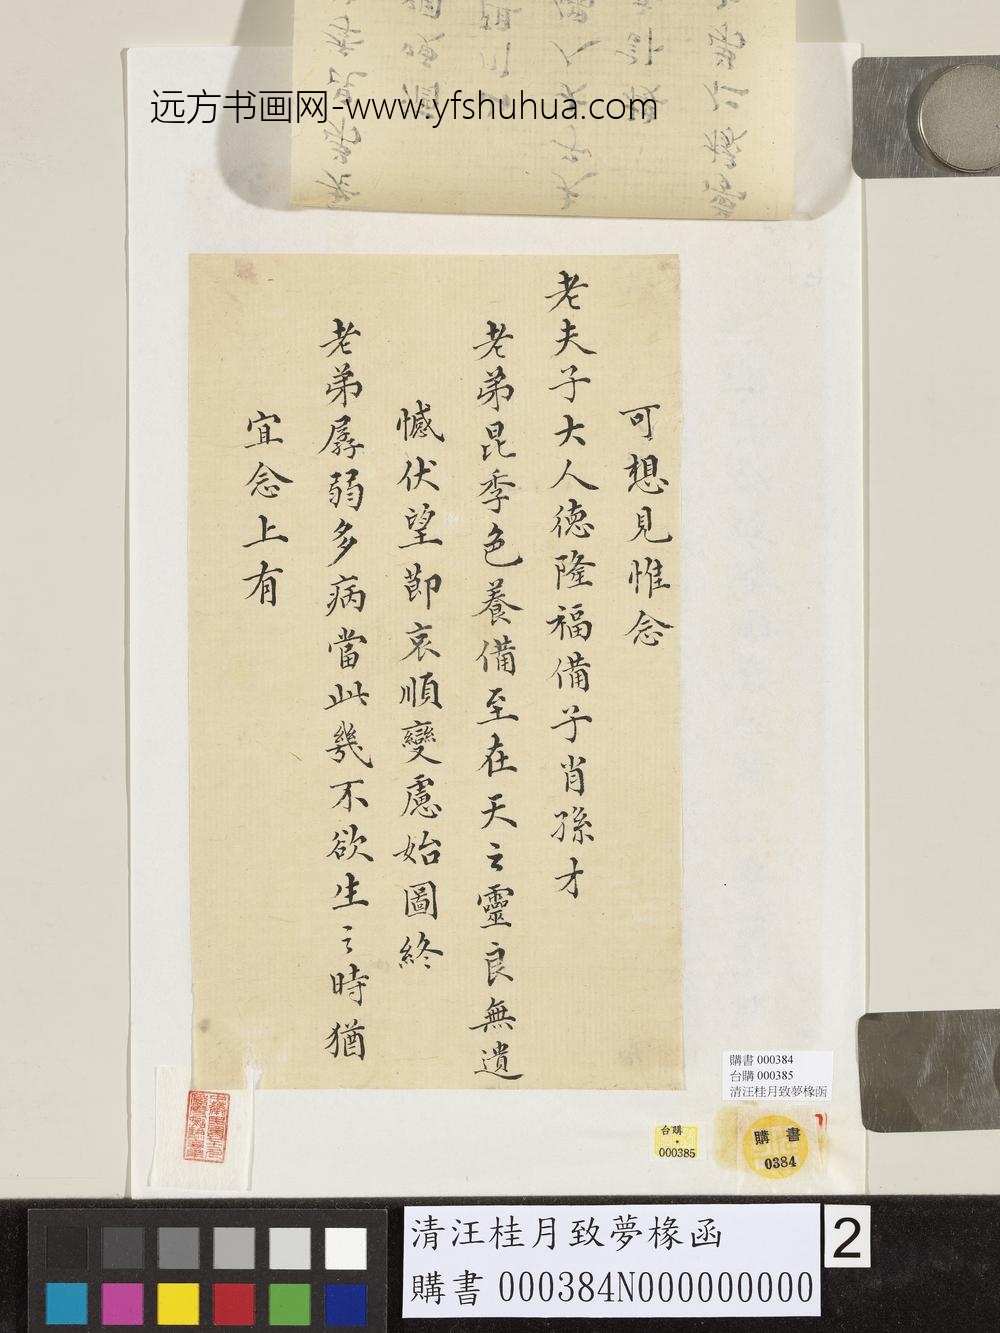 远方书画网-www.yfshuhua.com
可想見惟念
老夫子大人德隆福備子肖孫才
老弟昆季色養備至在天之靈良無遺
憾伏望節哀順變慮始圖終
老弟孱弱多病當此幾不欲生之時猶
宜念上有
購書 000384
台購 000385
清汪桂月致夢椽函
台購
000385
購書
0384
清汪桂月致夢椽函
購書 000384N000000000
2